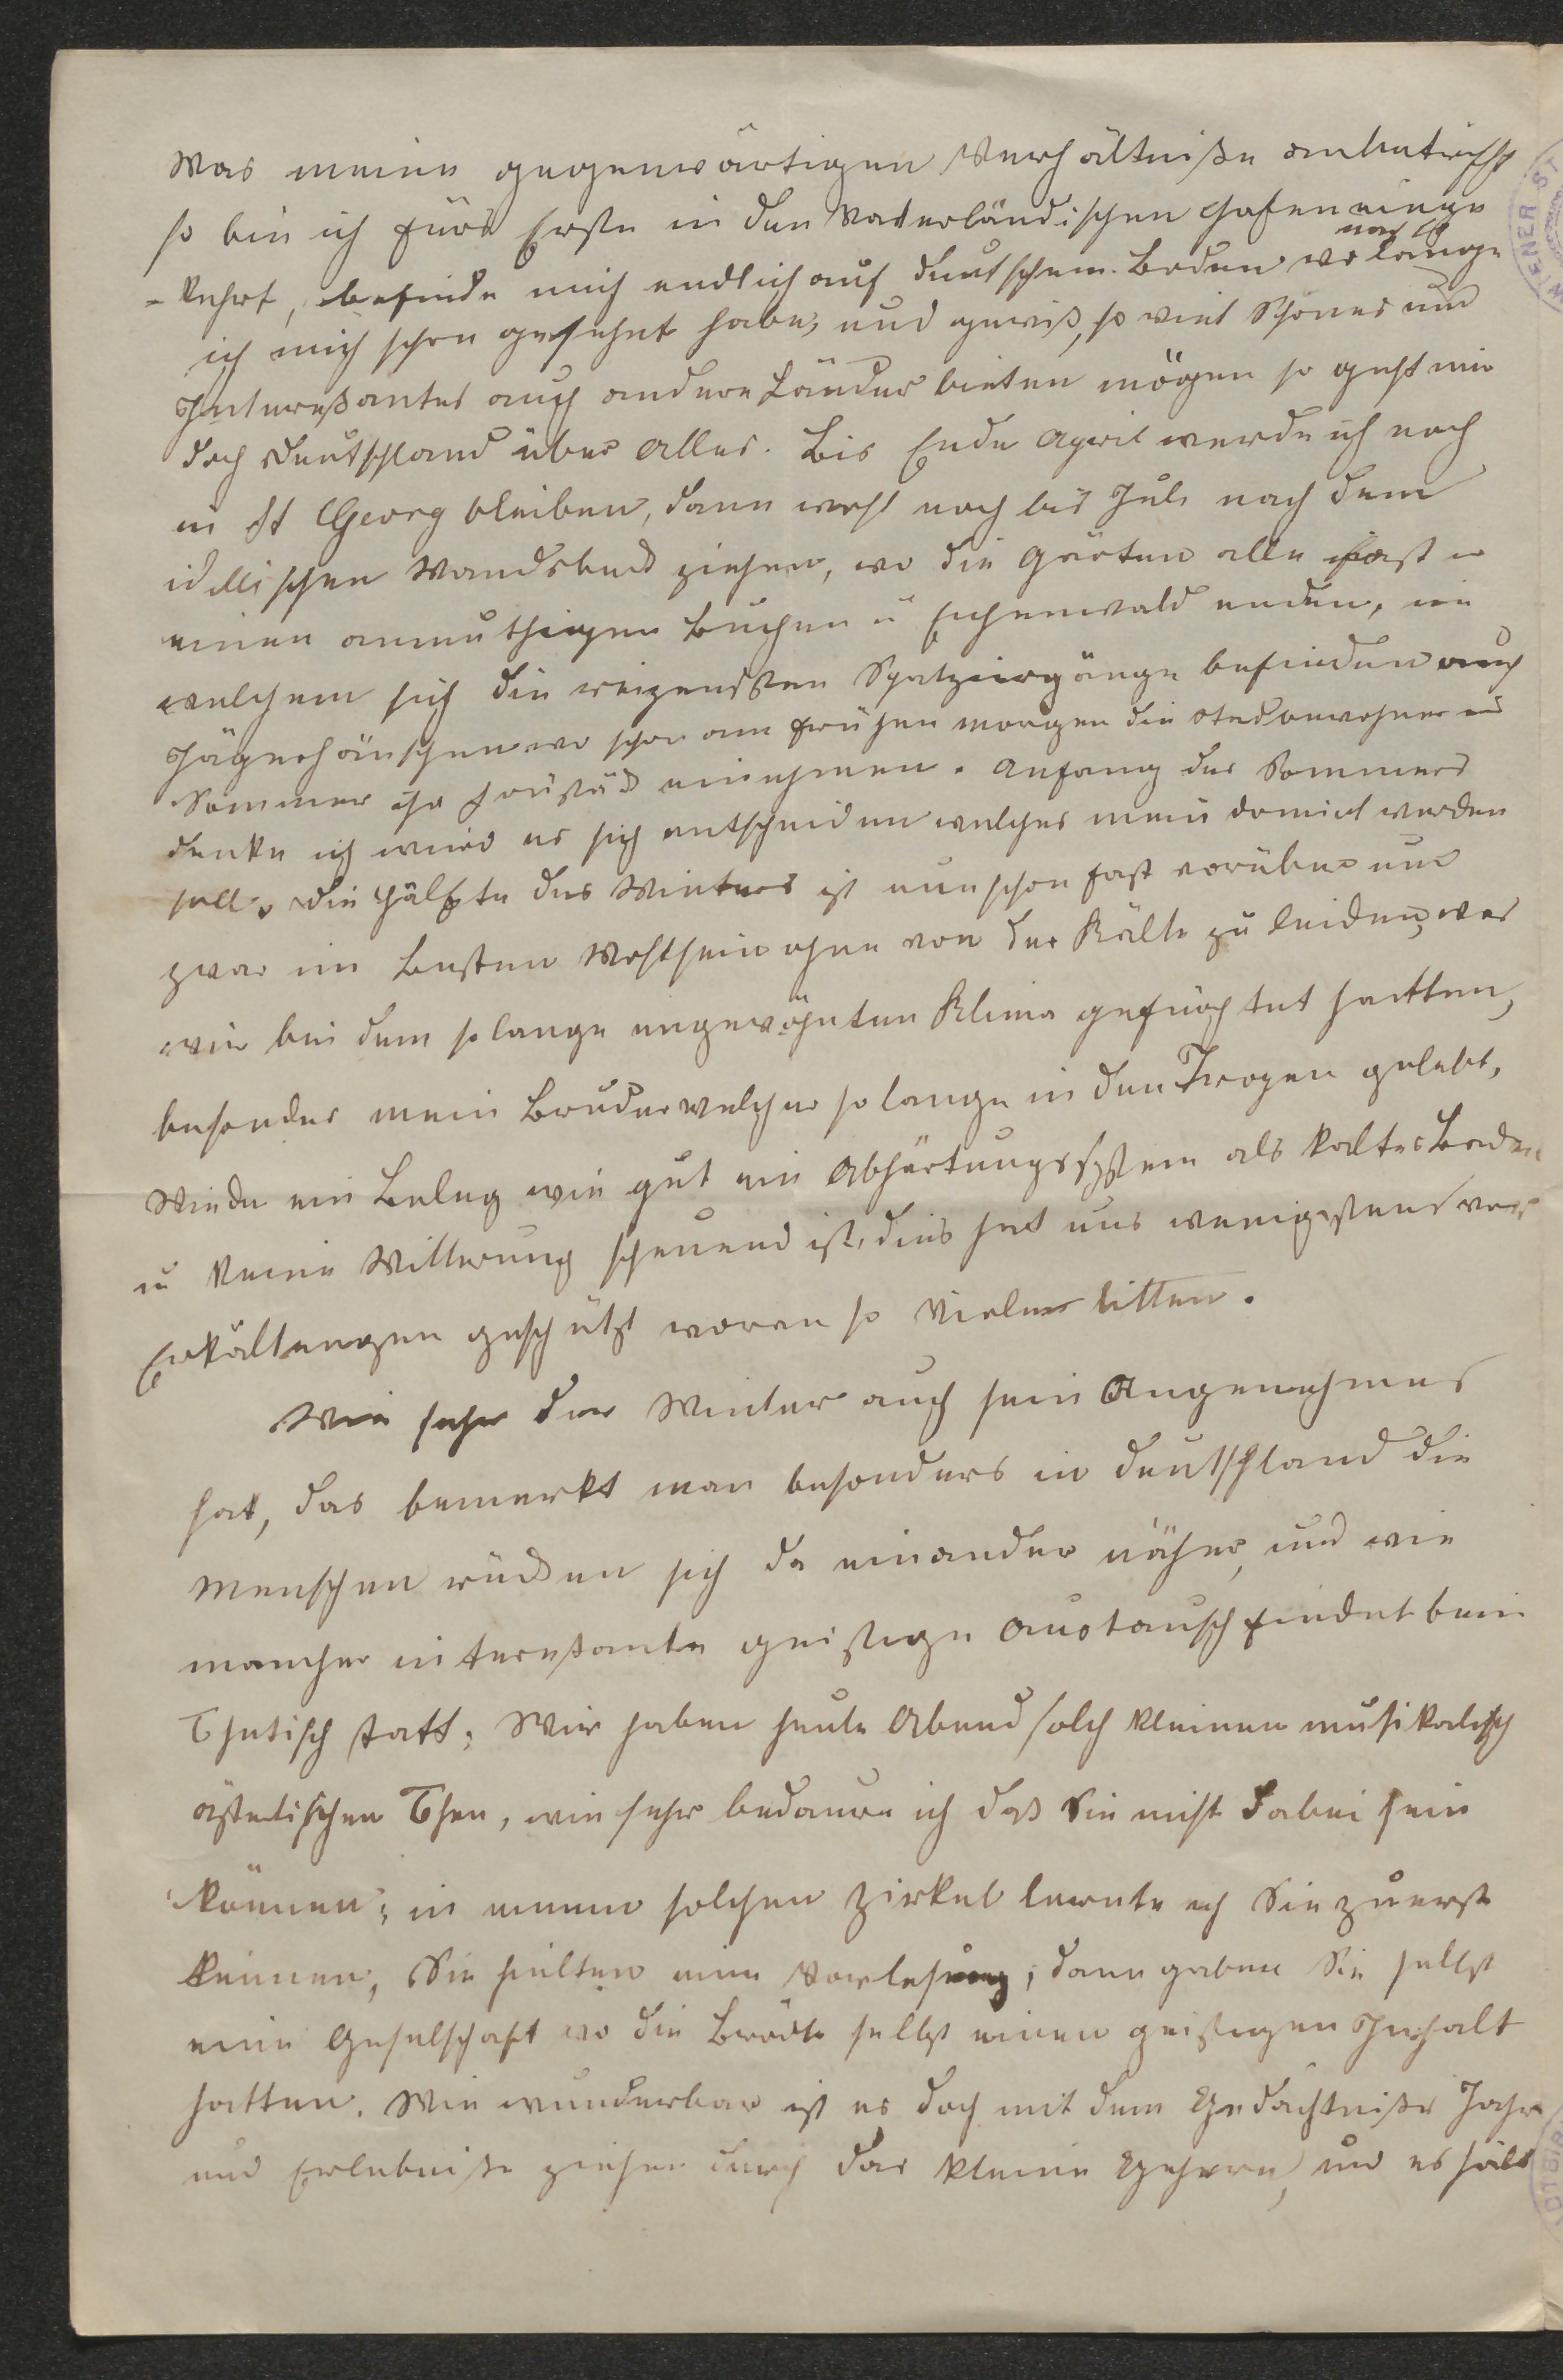 Was meine gegenwärtigen Verhältniße anbetrifft
so bin ich fürs Erste in den Vaterländischen Hafen einge
-kehrt, befinde mich endlich auf deutschem Boden wo lange
nach
ich mich schon gesehnt habe, und gewiß, so viel Schönes und
Intereßantes auch andere Länder bieten mögen so geht mir
doch Deutschland über Alles. Bis Ende April werde ich noch
in St Georg bleiben, dann wohl noch bis Juli nach dem
idillischen Wandsbeck ziehen, wo die Gärten alle fast in
einen anmuthigen Buchen u Eichenwald enden, in
welchem sich die reizendsten Spatziergänge befinden auch
Jägerhäuschen wo schon am frühen morgen die Stadtbewohner im
Sommer ihr Frühstück einnehmen. Anfang des Sommers
denke ich wird es sich entscheiden welches mein domicil werden
soll. Die Hälfte des Winters ist nun schon fast vorüber und
zwar im besten Wohlsein ohne von der Kälte zu leiden, was
wir bei dem so lange ungewöhnten Klima gefürchtet hatten,
besonders mein Bruder welcher so lange in den Tropen gelebt,
Wieder ein Beleg wie gut ein Abhärtungssystem als kaltes Baden
u keine Witterung scheuend ist, dies hat uns wenigstens vor
Erkältungen geschützt woran so Viele litten.
Wie sehr der Winter auch sein Angenehmes
hat, das bemerkt man besonders in Deutschland die
Menschen rücken sich da einander näher, und wie
mancher intereßante geistige Austausch findet beim
Theetisch statt; Wir haben heute Abend solch kleinen musikalisch
ästetischen Thee, wie sehr bedaure ich daß Sie nicht dabei sein
können; in einem solchen Zirkel lernte ich Sie zuerst
kennen, Sie hielten eine Vorlesung; dann gaben Sie selbst
eine Geselschaft wo die Brödte selbst einen geistigen Inhalt
hatten. Wie wunderbar ist es doch mit dem Gedächtniße Jahre
und Erlebniße ziehen durch das kleine Gehirn, und es hält